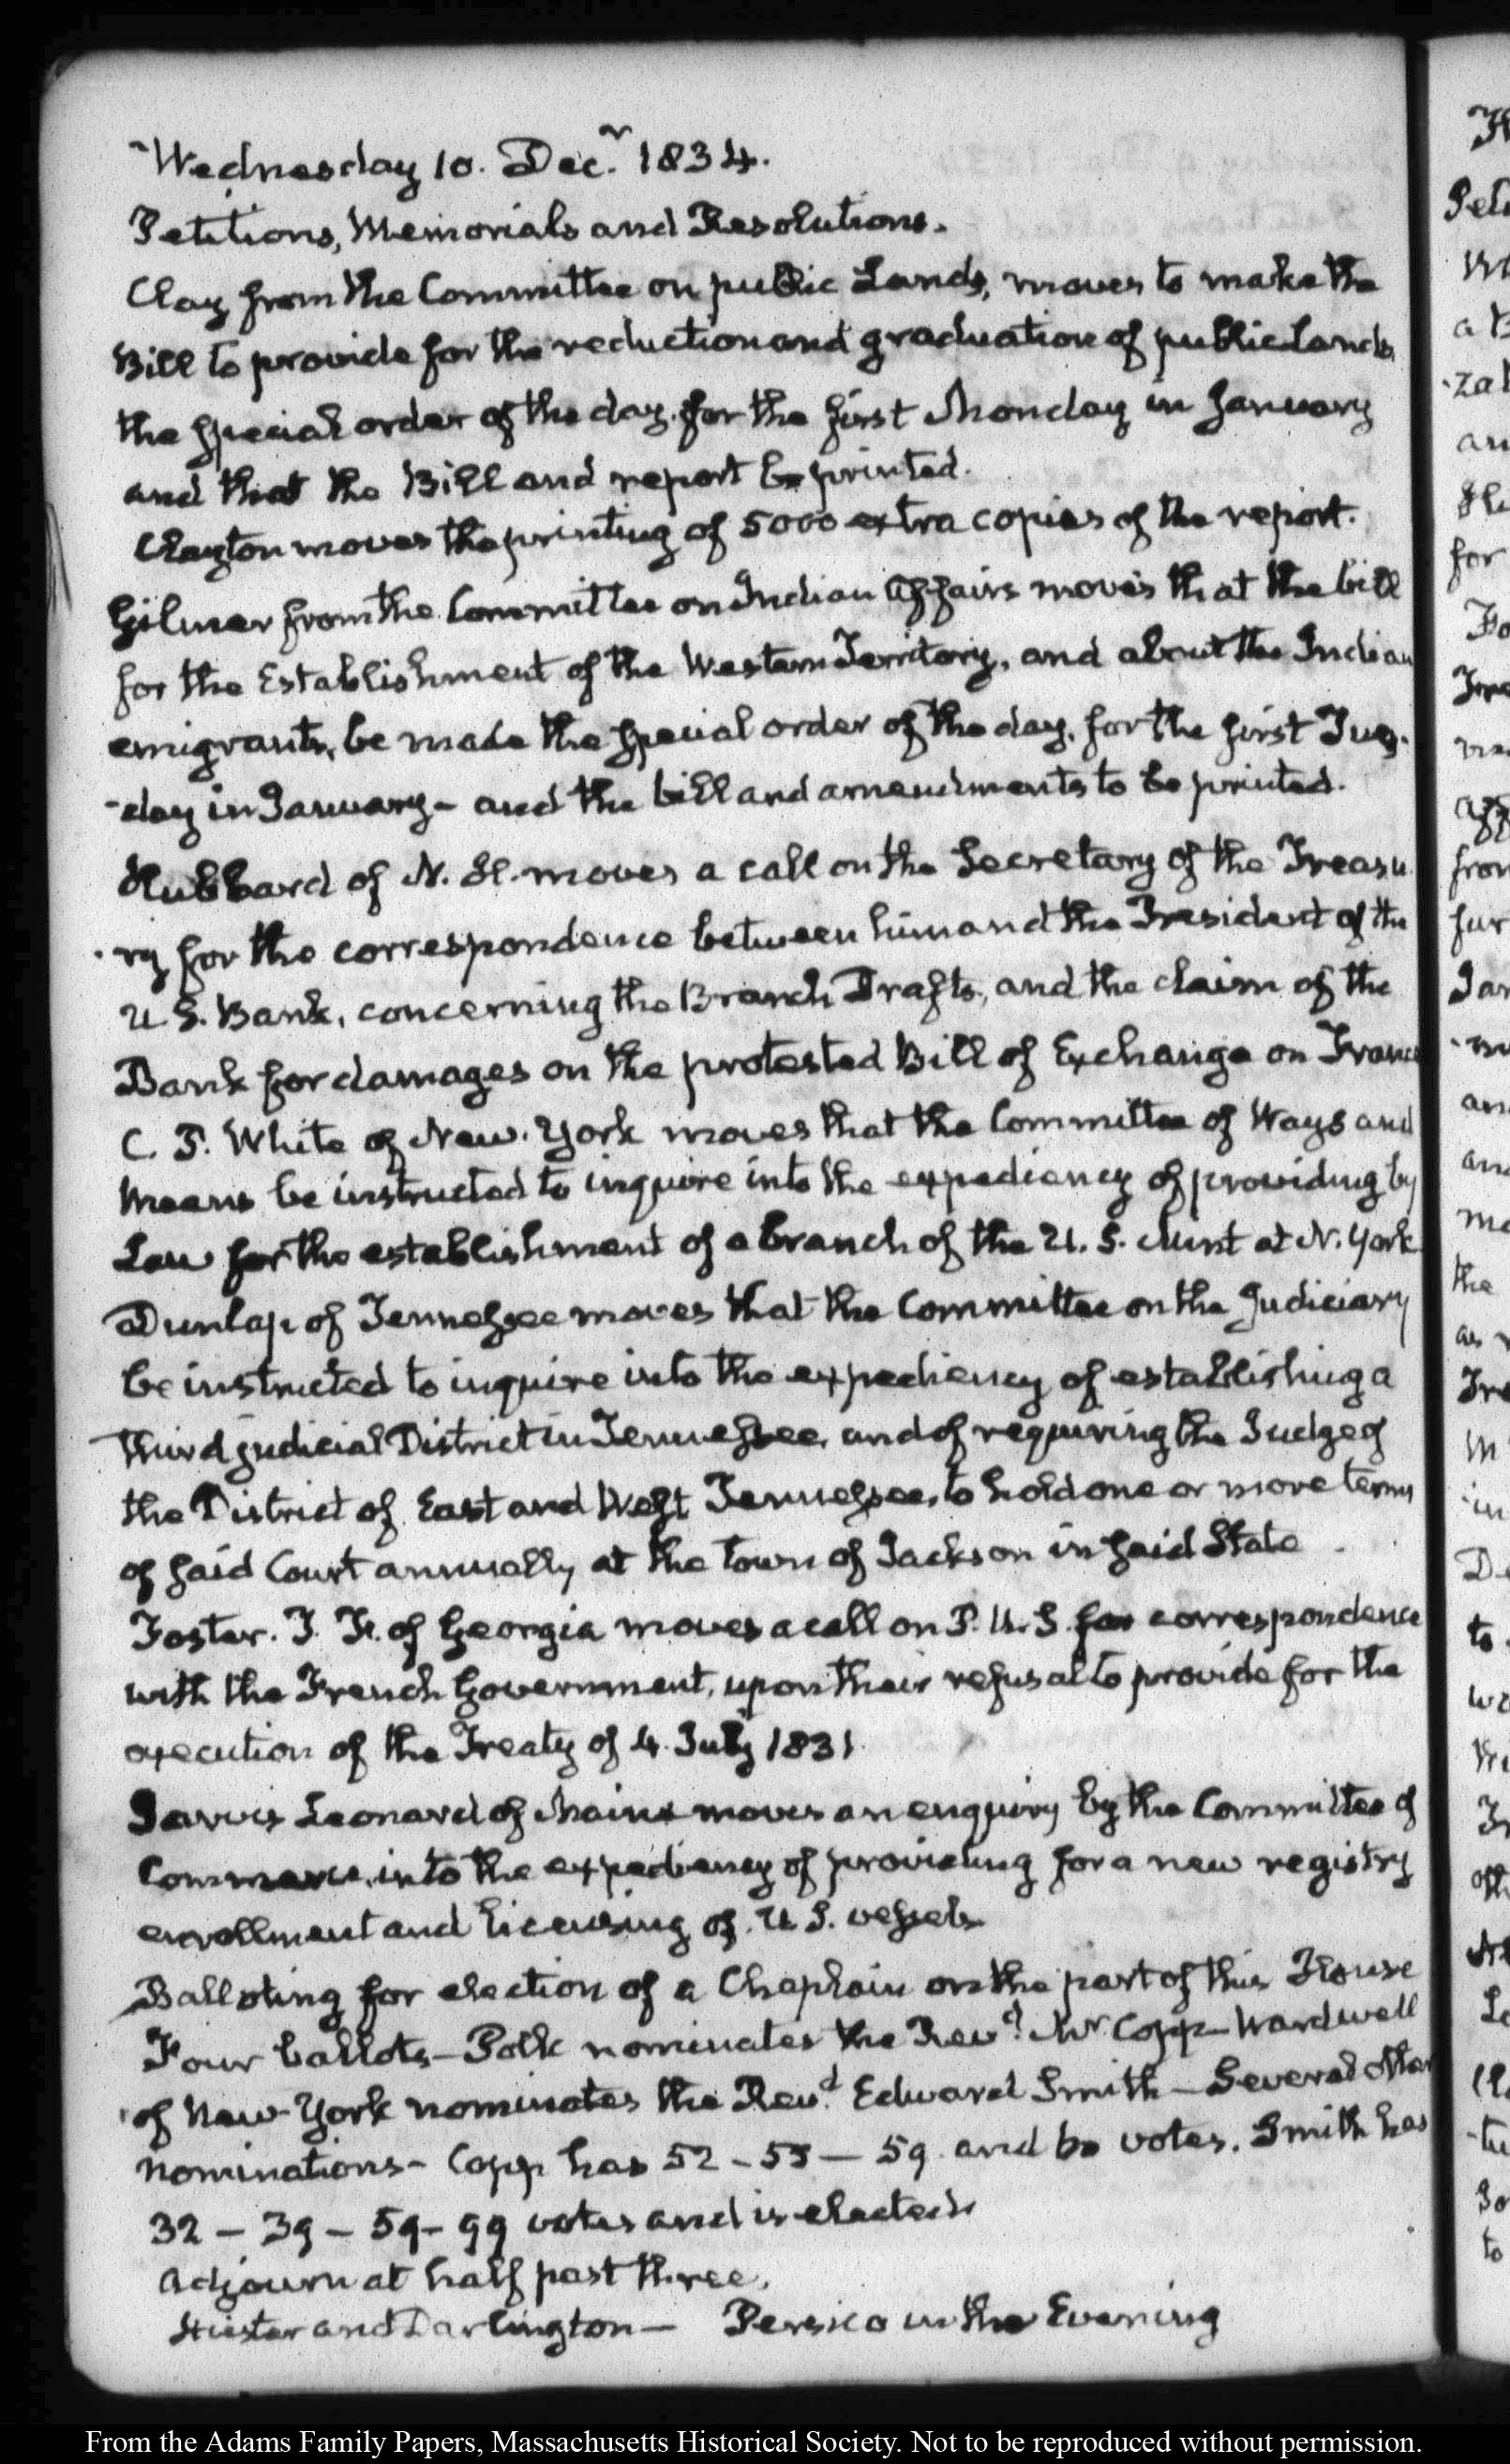 Wednesday 10. Decr 1834.
Petitions, Memorials and Resolutions.
Clay from the Committee on public Lands, moves to make the
Bill to provide for the reduction and graduation of public Lands,
the special order of the day, for the first Monday in January
and that the Bill and report be printed.
Clayton moves the printing of 5000 extra copies of the report.
Gilmer from the Committee on Indian Affairs moves that the bill
for the Establishment of the Western Territory, and about the Indian
emigrants, be made the special order of the day, for the first Tues-
-day in January - and the bill and amendments to be printed.
Hubbard of N. H. moves a call on the Secretary of the Treasu
-ry for the correspondence between him and the President of the
U. S. Bank, concerning the Branch Drafts, and the claim of the
Bank for damages on the protested Bill of Exchange on France
C. P. White of New-York moves that the Committee of Ways and
Means be instructed to inquire into the expediency of providing by
Law for the establishment of a branch of the U. S. Mint at N. York
Dunlap of Tennessee moves that the Committee on the Judiciary
be instructed to inquire into the expediency of establishing a
third judicial District in Tennessee, and of requiring the Judge of
the District of East and West Tennessee, to hold one or more terms
of said Court annually at the town of Jackson in said State.
Foster. T. F. of Georgia moves a call on P. U. S. for correspondence
with the French Government, upon their refusal to provide for the
execution of the Treaty of 4. July 1831.
Jarvis Leonard of Maine moves an enquiry by the Committee of
Commerce, into the expediency of providing for a new registry
enrollment and licensing of U. S. vessels
Balloting for election of a Chaplain on the part of this House
Four ballots - Polk nominates the Revd Mr Copp - Wardwell
of New-York nominates the Revd Edward Smith - Several other
nominations - Copp has 52 - 55 - 59 and votes. Smith has
32 - 39 - 59 - 99 votes and is elected.
Adjourn at half past three.
Hiester and Darlington - Persico in the Evening
From the Adams Family Papers, Massachusetts Historical Society. Not to be reproduced without permission.